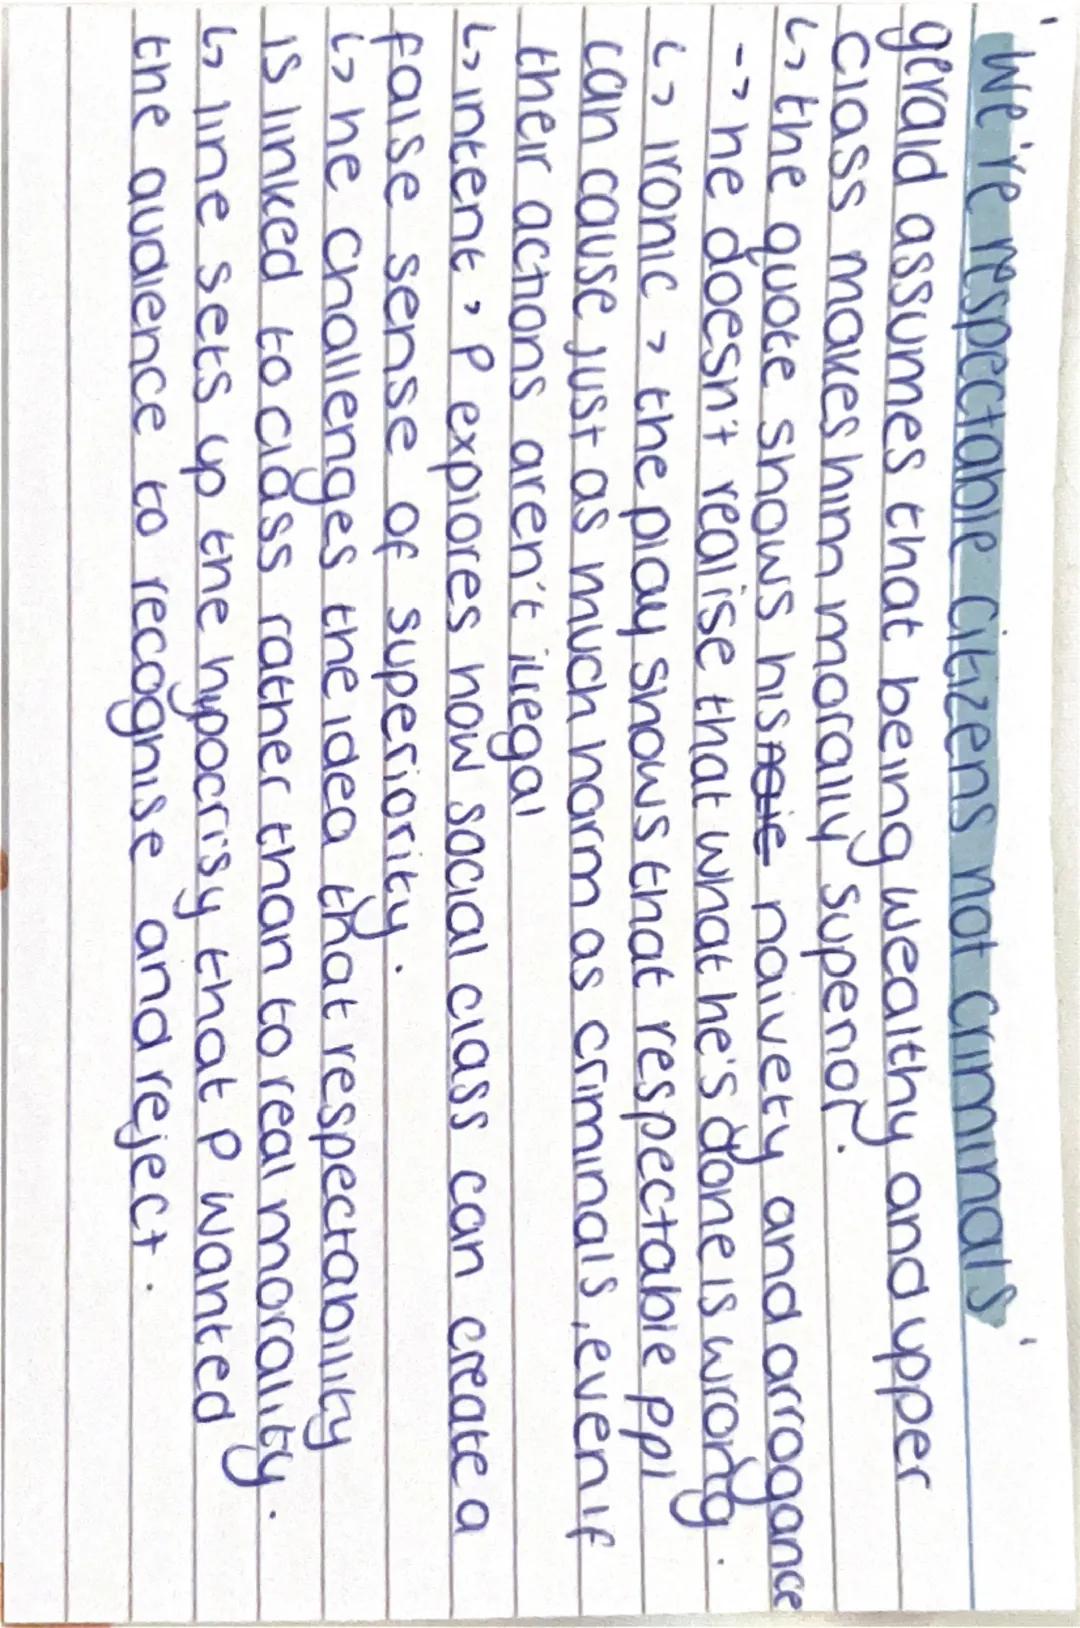 'We're respectable citizens not criminals'
gerald assumes that being wealthy and upper
class makes him morally superior.
↳ the quote shows his naivety and arrogance
-> he doesn't realise that what he's done is wrong.
↳ ironic > the play shows that respectable ppl
can cause just as much harm as criminals, even if
their actions aren't illegal
↳ intent > P explores how social class can create a
false sense of superiority.
↳ he challenges the idea that respectability
is linked to class rather than to real morality.
↳ line sets up the hypocrisy that P wanted
the audience to recognise and reject.